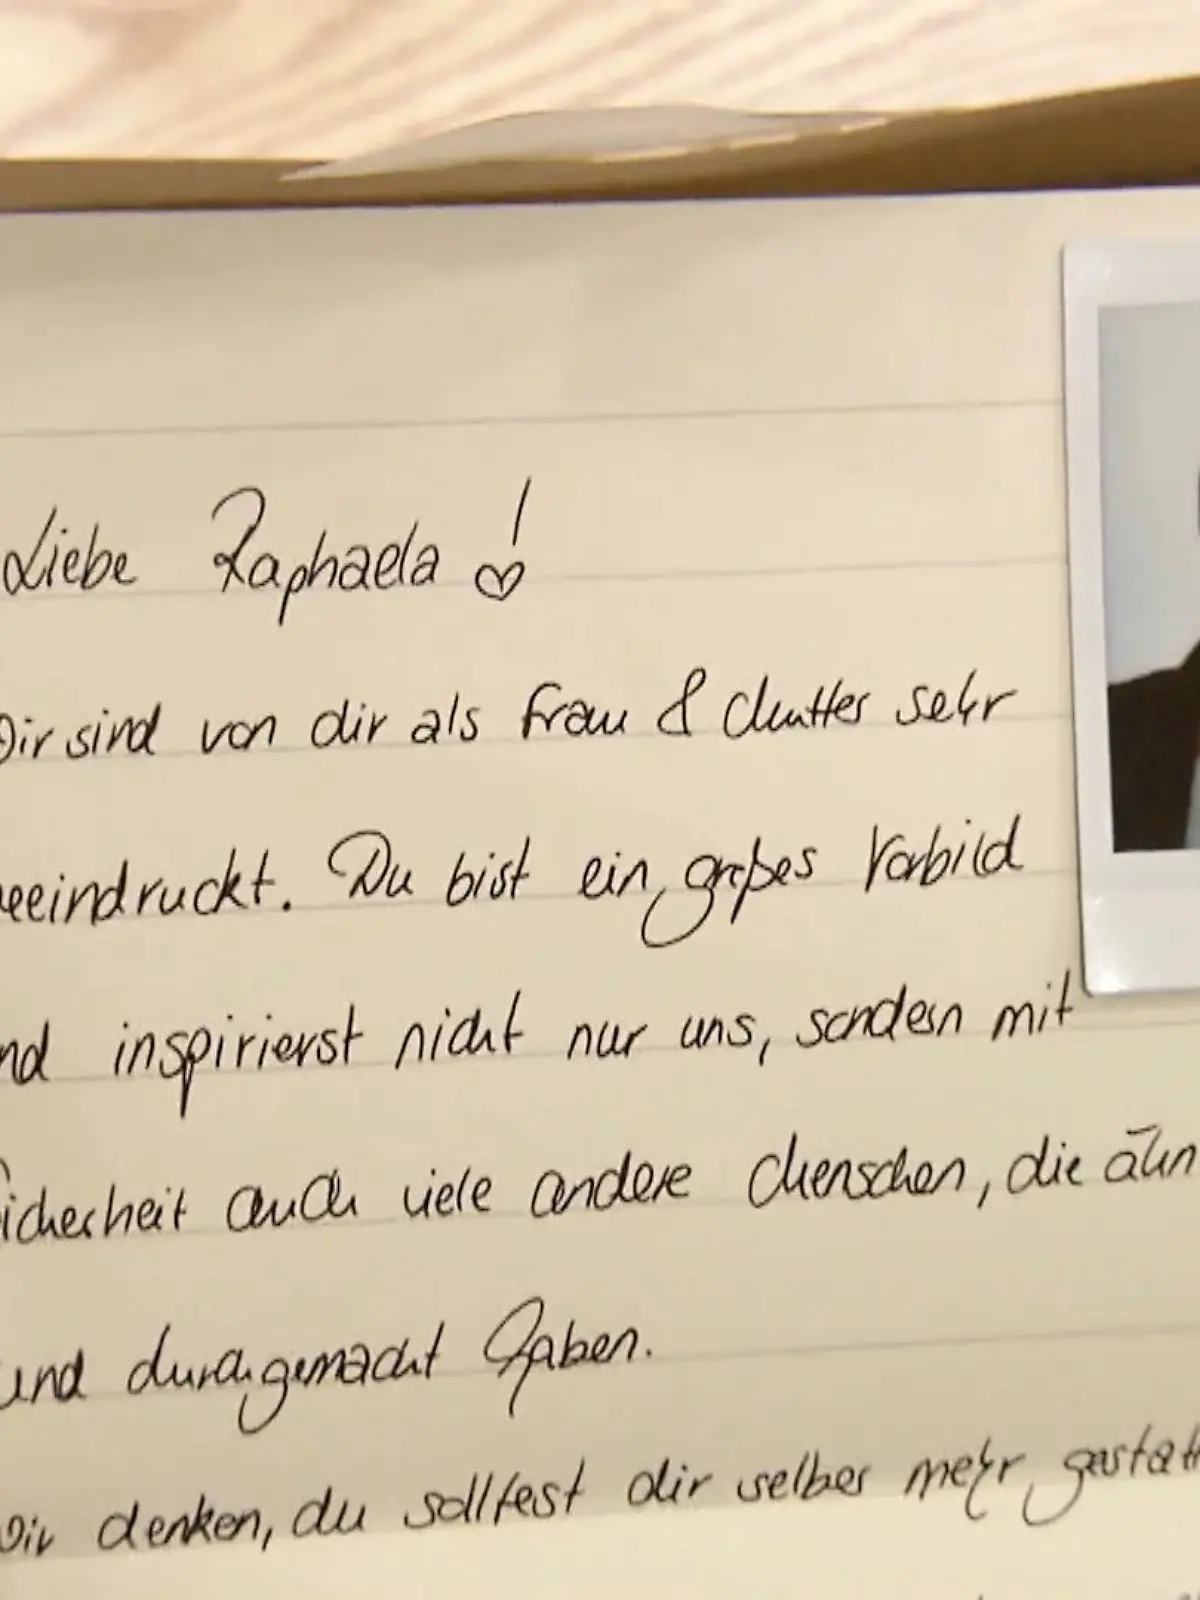 Liebe Raphaela!
Wir sind von dir als Frau & Mutter sehr
beeindruckt. Du bist ein großes Vorbild
und inspirierst nicht nur uns, sondern mit
Sicherheit auch viele andere Menschen, die ähn
und durchgemacht haben.
Wir denken, du solltest dir selber mehr gestatt